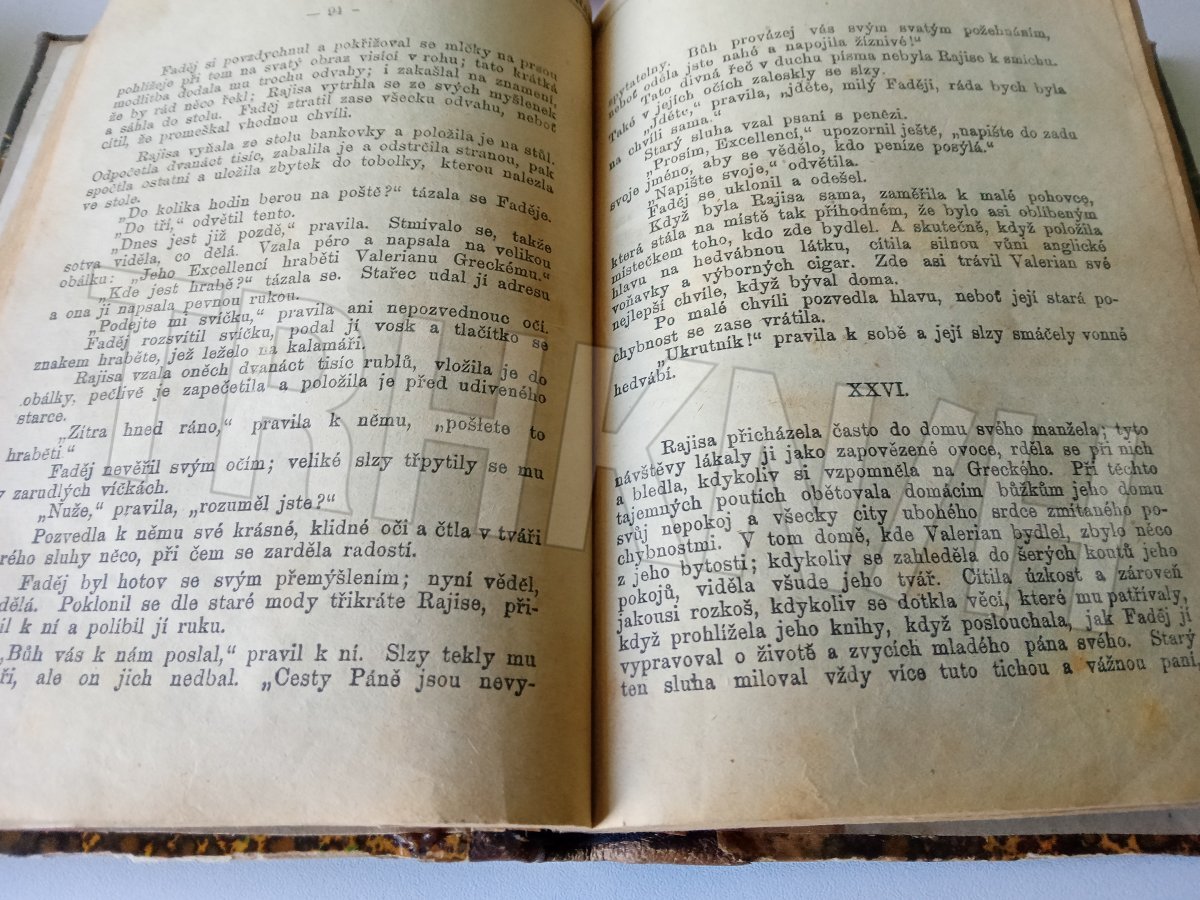 — 94 —
Faděj si povzdychnul a pokřižoval se mlčky na prsou
pohlížeje při tom na svatý obraz visící v rohu; tato krátká
modlitba dodala mu trochu odvahy; i zakašlal na znamení,
že by rád něco řekl. Rajisa vytrhla se ze svých myšlenek
a sáhla do stolu. Faděj ztratil zase všecku odvahu, neboť
cítil, že promeškal vhodnou chvíli.
Rajisa vyňala ze stolu bankovky a položila je na stůl.
Odpočetla dvanáct tisíc, zabalila je a odstrčila stranou, pak
spočtla ostatní a uložila zbytek do tobolky, kterou nalezla
ve stole.
„Do kolika hodin berou na poště?“ tázala se Faděje.
„Do tří,“ odvětil tento.
„Dnes jest již pozdě,“ pravila. Stmívalo se, takže
sotva viděla, co dělá. Vzala péro a napsala na velikou
obálku: „Jeho Excellencí hraběti Valerianu Greckému.“
„Kde jest hrabě?“ tázala se. Stařec udal jí adresu
a ona ji napsala pevnou rukou.
„Podejte mi svíčku,“ pravila ani nepozvednouc očí.
Faděj rozsvítil svíčku, podal jí vosk a tlačítko se
znakem hraběte, jež leželo na kalamáři.
Rajisa vzala oněch dvanáct tisíc rublů, vložila je do
obálky, pečlivě je zapečetila a položila je před udiveného
starce.
„Zítra hned ráno,“ pravila k němu, „pošlete to
hraběti.“
Faděj nevěřil svým očím; veliké slzy třpytily se mu
v zarudlých víčkách.
„Nuže,“ pravila, „rozuměl jste?“
Pozvedla k němu své krásné, klidné oči a čtla v tváři
rého sluhy něco, při čem se zarděla radostí.
Faděj byl hotov se svým přemýšlením; nyní věděl,
dělá. Poklonil se dle staré mody třikráte Rajise, při-
il k ní a políbil jí ruku.
„Bůh vás k nám poslal,“ pravil k ní. Slzy tekly mu
ří, ale on jich nedbal. „Cesty Páně jsou nevy-
zpytatelny. Bůh provázej vás svým svatým požehnáním,
neboť oděla jste nahé a napojila žíznivé!“
Tato divná řeč v duchu písma nebyla Rajise k smíchu.
Také v jejích očích zaleskly se slzy.
„Jděte,“ pravila, „jděte, milý Faději, ráda bych byla
na chvíli sama.“
Starý sluha vzal psaní s penězi.
„Prosím, Excellencí,“ upozornil ještě, „napište do zadu
svoje jméno, aby se vědělo, kdo peníze posýlá.“
„Napište svoje,“ odvětila.
Faděj se uklonil a odešel.
Když byla Rajisa sama, zaměřila k malé pohovce,
která stála na místě tak příhodném, že bylo asi oblíbeným
místečkem toho, kdo zde bydlel. A skutečně, když položila
hlavu na hedvábnou látku, cítila silnou vůni anglické
voňavky a výborných cigar. Zde asi trávil Valerian své
nejlepší chvíle, když býval doma.
Po malé chvíli pozvedla hlavu, neboť její stará po-
chybnost se zase vrátila.
„Ukrutník!“ pravila k sobě a její slzy smáčely vonné
hedvábí.
XXVI.
Rajisa přicházela často do domu svého manžela; tyto
návštěvy lákaly ji jako zapovězené ovoce, rděla se při nich
a bledla, kdykoliv si vzpomněla na Greckého. Při těchto
tajemných poutích obětovala domácím bůžkům jeho domu
svůj nepokoj a všecky city ubohého srdce zmítaného po-
chybnostmi. V tom domě, kde Valerian bydlel, zbylo něco
z jeho bytosti; kdykoliv se zahleděla do šerých koutů jeho
pokojů, viděla všude jeho tvář. Cítila úzkost a zároveň
jakousi rozkoš, kdykoliv se dotkla věcí, které mu patřívaly,
když prohlížela jeho knihy, když poslouchala, jak Faděj jí
vypravoval o životě a zvycích mladého pána svého. Starý
ten sluha miloval vždy více tuto tichou a vážnou paní.